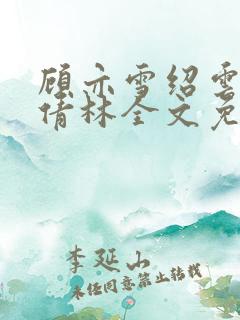 顾亦雪绍云
倩林全文免
李延山
未经同意禁止转载